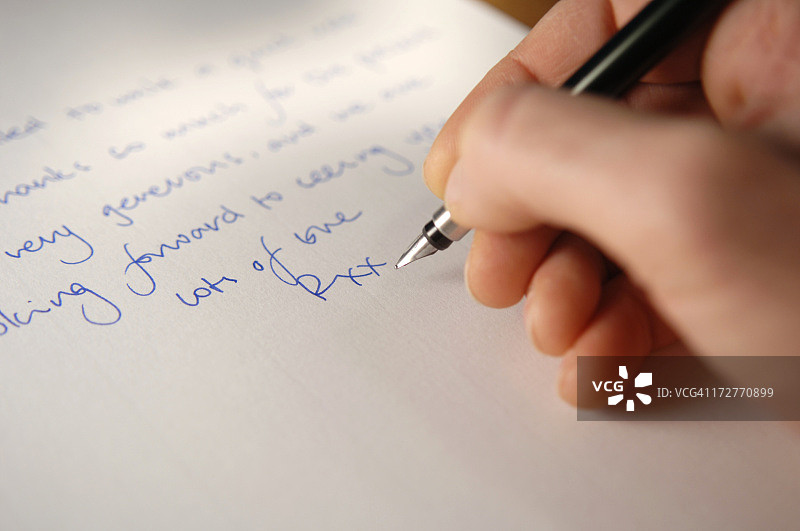 to write a quick
thanks so much for the
very generous, and we are
looking forward to seeing
lots of love
R xx
VCG ID: VCG41172770899